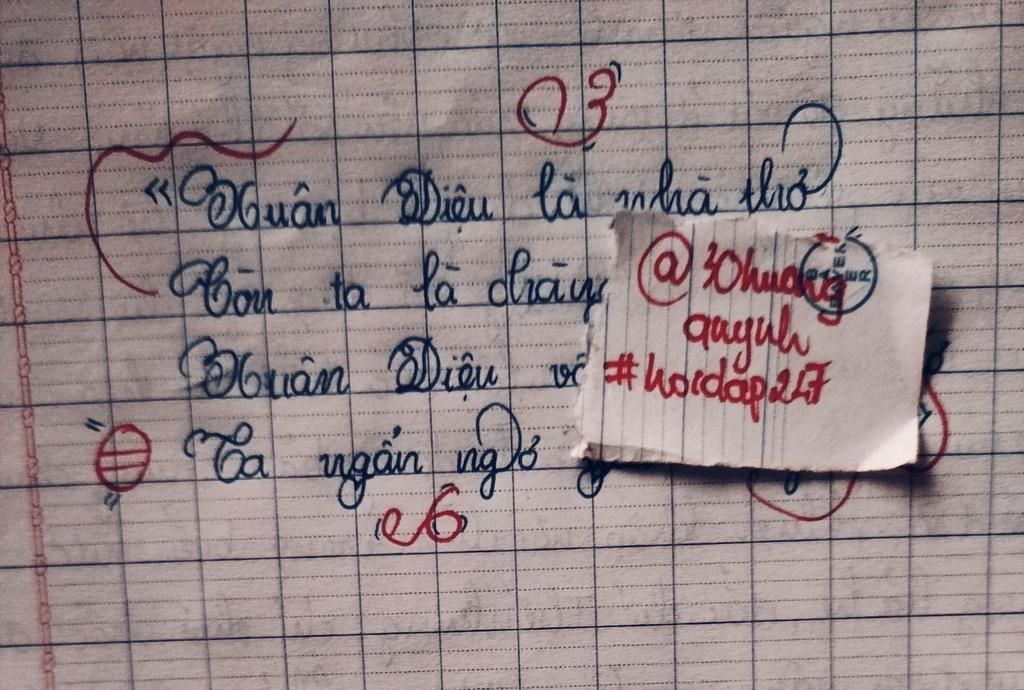 03
“Xuân Diệu là nhà thơ
Còn ta là chàng
Xuân Diệu
Ta ngẩn ngơ
@30huong
quynh
#hoidap247